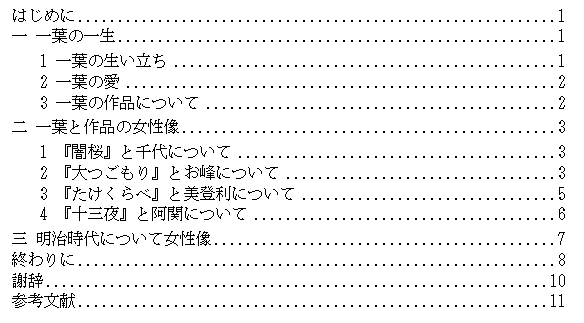 はじめに............................................................1
一 一葉の一生.......................................................1
1 一葉の生い立ち ................................................1
2 一葉の愛 ......................................................2
3 一葉の作品について ............................................2
二 一葉と作品の女性像...............................................3
1 『闇桜』と千代について ........................................3
2 『大つごもり』とお峰について ..................................3
3 『たけくらべ』と美登利について ................................5
4 『十三夜』と阿関について ......................................6
三 明治時代について女性像...........................................7
終わりに............................................................8
謝辞...............................................................10
参考文献...........................................................11